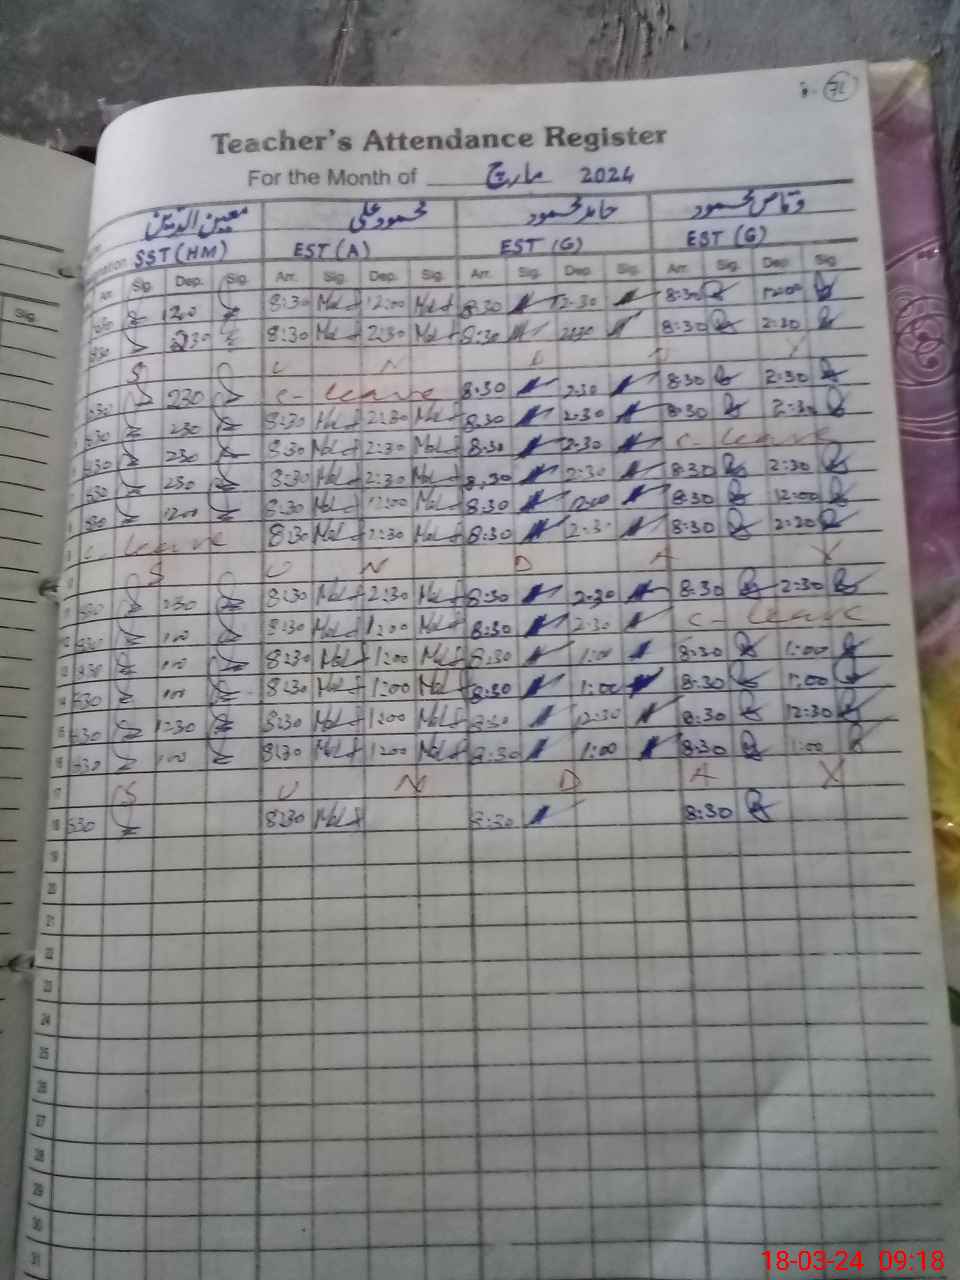 Teacher's Attendance Register
For the Month of مارچ 2024
معین الدین محمود علی حامد محمود وقاص محمود
SST (HM) EST (A) EST (G) EST (G)
Arr. Sig. Dep. Sig. Arr. Sig. Dep. Sig. Arr. Sig. Dep. Sig. Arr. Sig. Dep. Sig
1200 8:30 12:00 8:30 12:30 8:30 12:00
830 230 8:30 2:30 8:30 230 8:30 2:30
S U N D A Y
830 230 C- leave 8:30 2:30 8:30 2:30
830 230 8:30 2:30 8:30 2:30 8:30 2:30
830 230 8:30 2:30 8:30 2:30 C- leave
830 230 8:30 2:30 8:30 2:30 8:30 2:30
8 830 1200 8:30 12:00 8:30 1200 8:30 12:00
9 C- leave 8:30 2:30 8:30 2:30 8:30 2:30
10 S U N D A Y
11 830 230 8:30 2:30 8:30 2:30 8:30 2:30
12 830 100 8:30 1200 8:30 2:30 C- leave
13 830 100 8:30 1:00 8:30 1:00 8:30 1:00
14 830 100 8:30 1:00 8:30 1:00 8:30 1:00
15 830 1230 8:30 1200 8:30 12:30 8:30 12:30
16 830 100 8:30 1200 8:30 1:00 8:30 1:00
17 S U N D A Y
18 830 8:30 8:30 8:30
19
20
21
22
23
24
25
26
27
28
29
30
31
Sig.
18-03-24 09:18